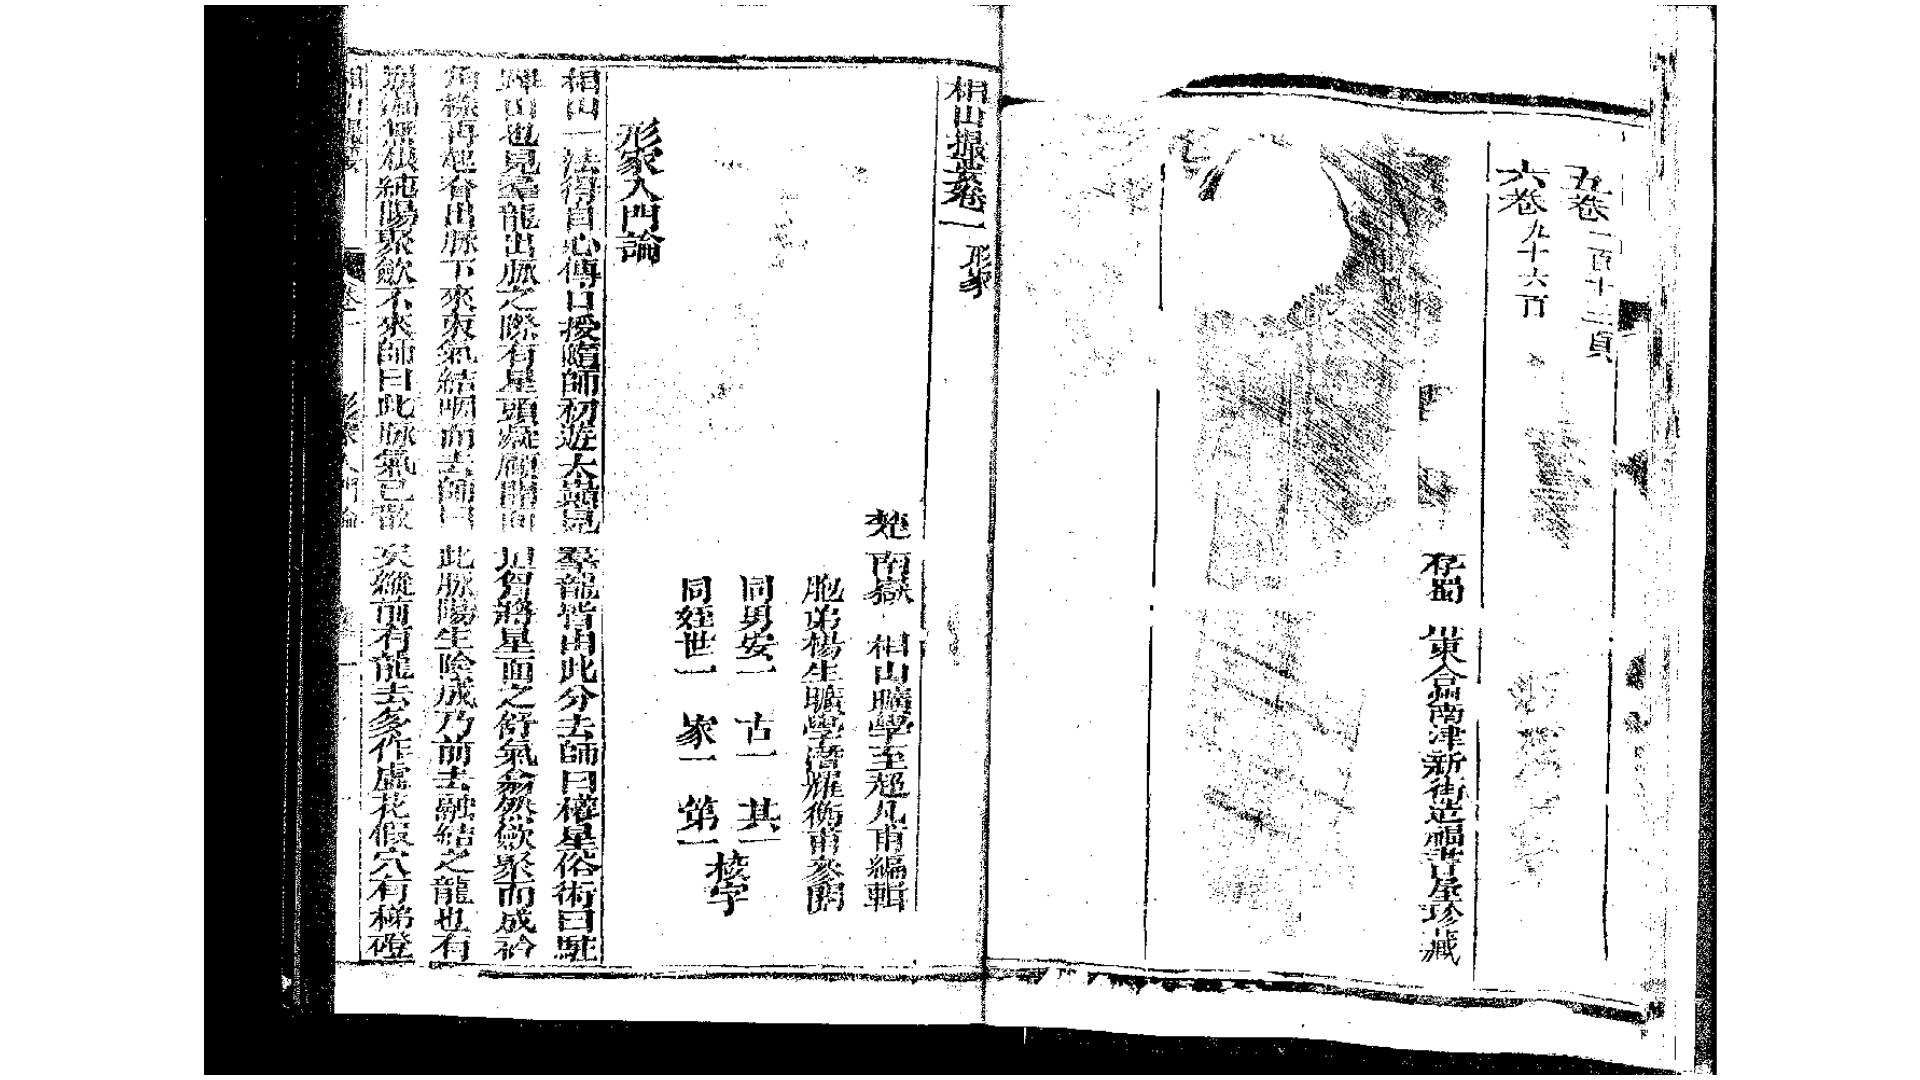 五卷一百十二頁
六卷九十六頁
存蜀 川東合州南津新街造福書屋珍藏
相山撮要卷一 形家
楚南嶽 相山曠學至超凡甫編輯
胞弟楊生曠學潛耀衡甫參閱
同男安一 古一 其一
同姪世一 家一 第一
校字
形家入門論
相山一法得自心傳口授隨師初遊太嶽見羣龍皆由此分去師曰權星俗術曰駐
蹕山也見羣龍出脈之際有星頭凝
坦胷將星面之舒氣翕然歛聚而成衿
再起脊出脈下來東氣結咽而去師曰此脈陽生陰成乃前去融結之龍也有
純陽聚歛不來師曰此脈氣已散矣縱前有龍去多作虛花假穴有梯磴